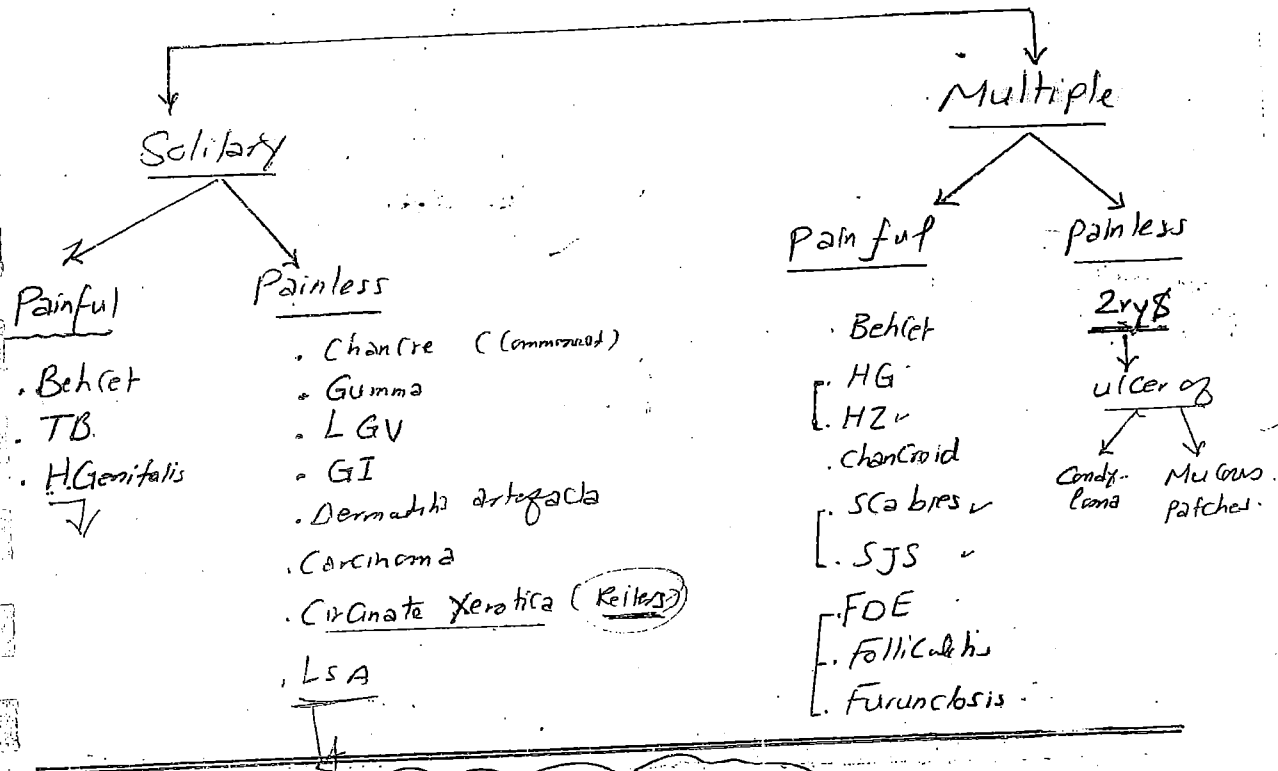 Solitary
Painful
. Behcet
. TB.
. H.Genitalis
Painless
. Chancre (Commonest)
. Gumma
. LGV
. GI
. Dermatitis artefacta
. Carcinoma
. Circinate Xerotica (Reiters)
. LSA
Multiple
Painful
. Behcet
. HG
. HZ
. chancroid
. Scabies
. SJS
. FDE
. Folliculitis
. Furunclosis.
painless
2ry $
ulcer of
Condy-
loma
Mucous
patches.